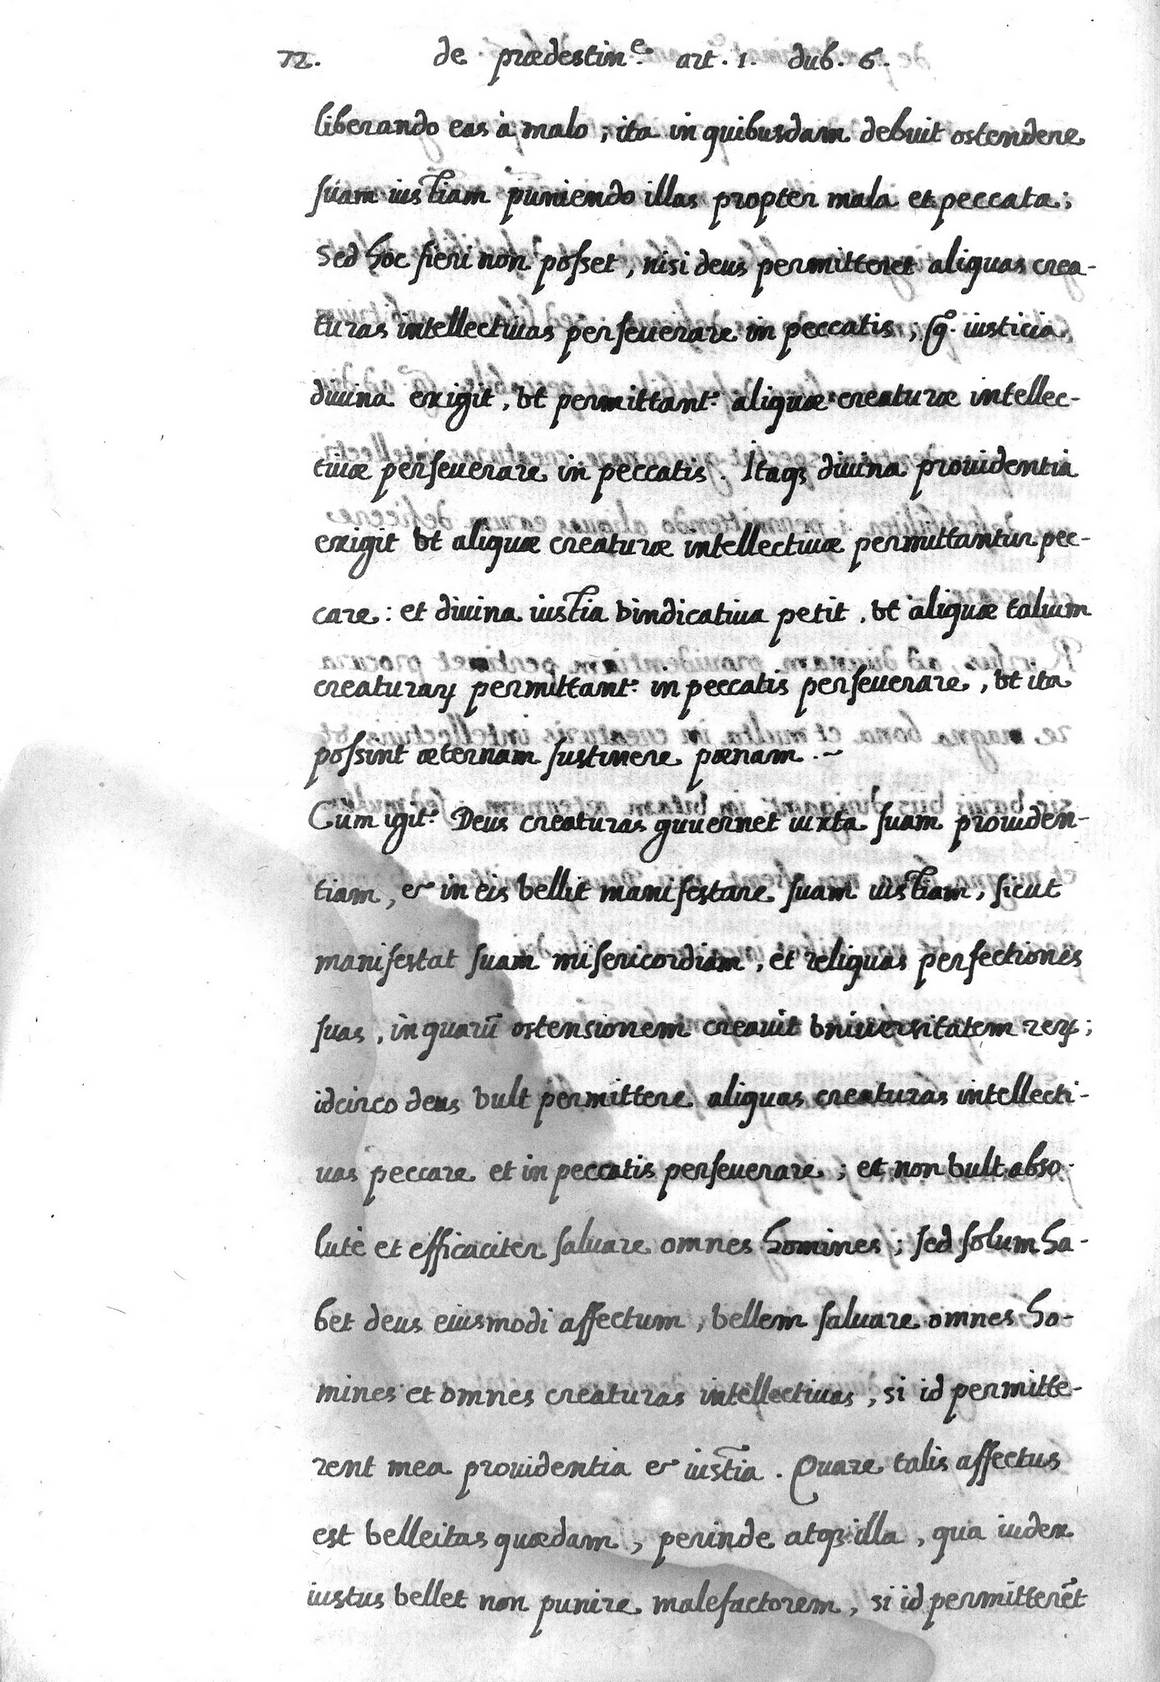 72. de prædestin^e. art. 1. dub. 6.
liberando eas à malo ; ita in quibusdam debuit ostendere
suam iustiam puniendo illas propter mala et peccata ;
Sed hoc fieri non posset , nisi deus permitteret aliquas crea-
turas intellectiuas perseuerare in peccatis , g.º iusticia
diuina exigit , vt permittant.r aliquæ creaturæ intellec-
tiuæ perseuerare in peccatis . Itaq; diuina prouidentia
exigit vt aliquæ creaturæ intellectiuæ permittantur pec-
care : et diuina iustia vindicatiua petit , vt aliquæ talium
creaturarꝝ permittant.r in peccatis perseuerare , vt ita
possint æternam sustinere pœnam . ~
Cum igit.r Deus creaturas guuernet iuxta suam prouiden-
tiam , & in eis vellit manifestare suam iustiam , sicut
manifestat suam misericordiam , et reliquas perfectiones
suas , in quarū ostensionem creauit vniuersitatem rerꝝ ;
idcirco deus vult permittere aliquas creaturas intellecti-
uas peccare et in peccatis perseuerare ; et non vult abso-
lutè et efficaciter saluare omnes homines ; sed solum ha-
bet deus eiusmodi affectum , vellem saluare omnes ho-
mines et omnes creaturas intellectiuas , si id permitte-
rent mea prouidentia & iustia . Quare talis affectus
est velleitas quædam , perinde atq; illa , qua iudex
iustus vellet non punire malefactorem , si id permitterēt